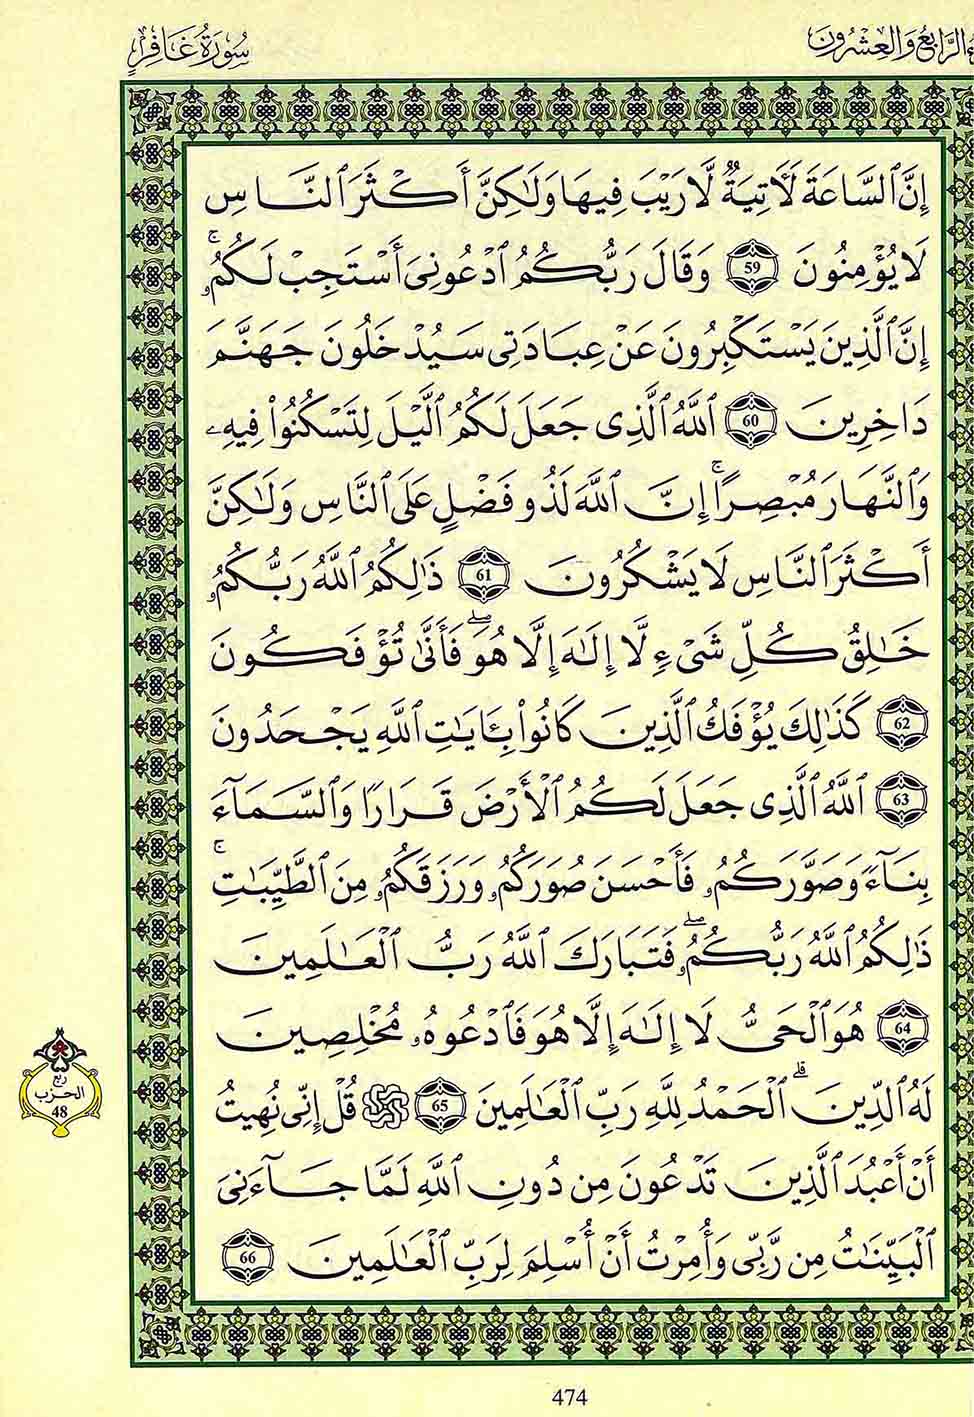 سُورَةُ غَافِرٍ
الرَّابِعُ وَالعِشْرُونَ
إِنَّ ٱلسَّاعَةَ لَأٓتِيَةٌ لَّا رَيْبَ فِيهَا وَلَٰكِنَّ أَكْثَرَ ٱلنَّاسِ
لَا يُؤْمِنُونَ 59 وَقَالَ رَبُّكُمُ ٱدْعُونِىٓ أَسْتَجِبْ لَكُمُۥٓ ۚ
إِنَّ ٱلَّذِينَ يَسْتَكْبِرُونَ عَنْ عِبَادَتِى سَيُدْخَلُونَ جَهَنَّمَ
دَاخِرِينَ 60 ٱللَّهُ ٱلَّذِى جَعَلَ لَكُمُ ٱلَّيْلَ لِتَسْكُنُوا۟ فِيهِۦ
وَٱلنَّهَارَ مُبْصِرًا ۚ إِنَّ ٱللَّهَ لَذُو فَضْلٍ عَلَى ٱلنَّاسِ وَلَٰكِنَّ
أَكْثَرَ ٱلنَّاسِ لَا يَشْكُرُونَ 61 ذَٰلِكُمُ ٱللَّهُ رَبُّكُمُۥ
خَٰلِقُ كُلِّ شَىْءٍ لَّا إِلَٰهَ إِلَّا هُوَ ۖ فَأَنَّىٰ تُؤْفَكُونَ
62 كَذَٰلِكَ يُؤْفَكُ ٱلَّذِينَ كَانُوا۟ بِـَٔايَٰتِ ٱللَّهِ يَجْحَدُونَ
63 ٱللَّهُ ٱلَّذِى جَعَلَ لَكُمُ ٱلْأَرْضَ قَرَارًا وَٱلسَّمَآءَ
بِنَآءً وَصَوَّرَكُمُۥ فَأَحْسَنَ صُوَرَكُمُۥ وَرَزَقَكُمُۥ مِنَ ٱلطَّيِّبَٰتِ ۚ
ذَٰلِكُمُ ٱللَّهُ رَبُّكُمُۥ ۖ فَتَبَارَكَ ٱللَّهُ رَبُّ ٱلْعَٰلَمِينَ
64 هُوَ ٱلْحَىُّ لَا إِلَٰهَ إِلَّا هُوَ فَٱدْعُوهُۥ مُخْلِصِينَ
لَهُ ٱلدِّينَ ۗ ٱلْحَمْدُ لِلَّهِ رَبِّ ٱلْعَٰلَمِينَ 65 قُلْ إِنِّى نُهِيتُ
أَنْ أَعْبُدَ ٱلَّذِينَ تَدْعُونَ مِن دُونِ ٱللَّهِ لَمَّا جَآءَنِىَ
ٱلْبَيِّنَٰتُ مِن رَّبِّى وَأُمِرْتُ أَنْ أُسْلِمَ لِرَبِّ ٱلْعَٰلَمِينَ 66
ربع
الحزب
48
474